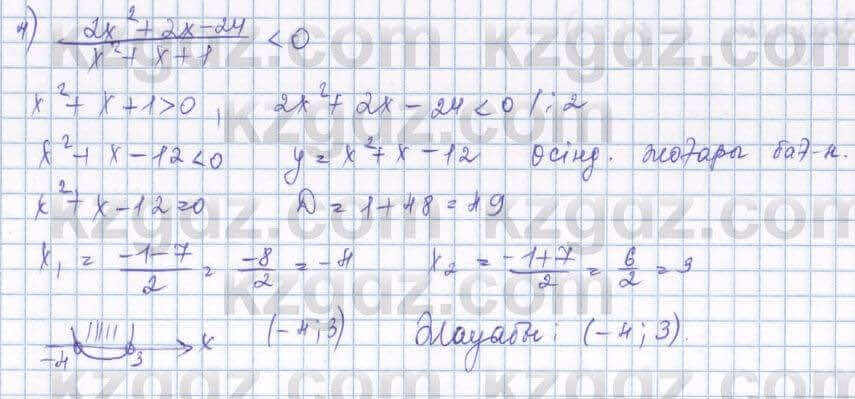 4) (2x² + 2x - 24)/(x² + x + 1) < 0
x² + x + 1 > 0, 2x² + 2x - 24 < 0 / : 2
x² + x - 12 < 0 y = x² + x - 12 өсінд. жоғары бағ-н.
x² + x - 12 = 0 D = 1 + 48 = 49
x₁ = (-1-7)/2 = -8/2 = -4 x₂ = (-1+7)/2 = 6/2 = 3
-4 3 x (-4; 3) Жауабы: (-4; 3).
kzgdz.com